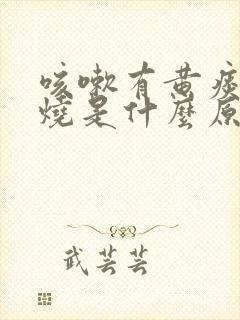 咳嗽有黄痰
燒是什麼原
武芸芸